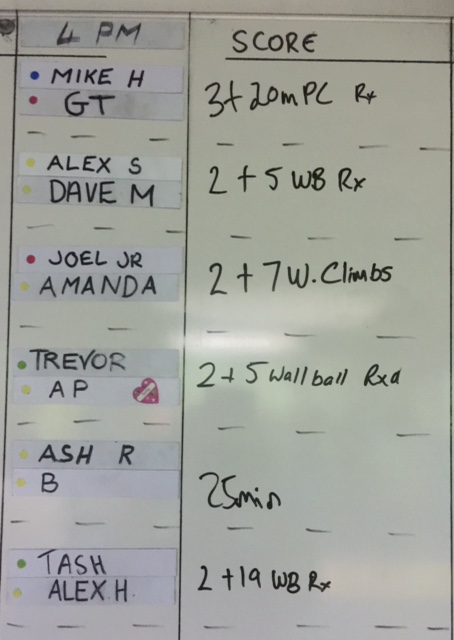 4 PM SCORE
MIKE H
GT
3+20m PC Rx
ALEX S
DAVE M
2 + 5 WB Rx
JOEL JR
AMANDA
2 + 7 W. Climbs
TREVOR
AP
2 + 5 Wall ball Rxd
ASH R
B
25min
TASH
ALEX H.
2 + 19 WB Rx